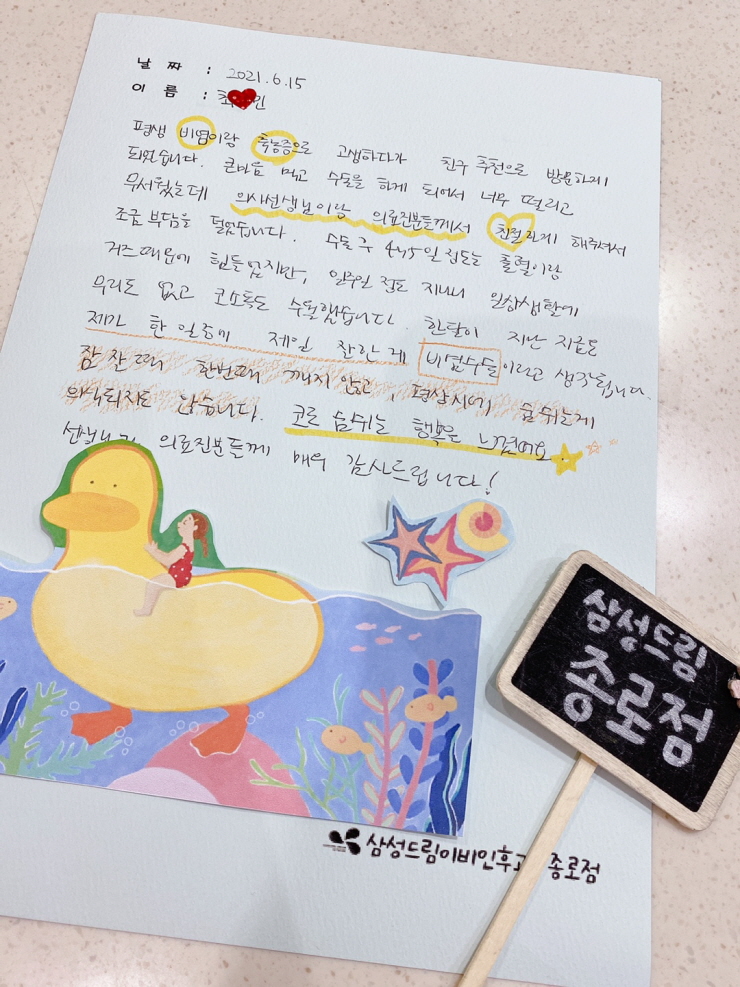 날 짜 : 2021.6.15
이 름 : 최 민
평생 비염이랑 축농증으로 고생하다가 친구 추천으로 방문하게
되었습니다. 큰마음 먹고 수술을 하게 되어서 너무 떨리고
무서웠는데 의사선생님이랑 의료진분들께서 친절하게 해주셔서
조금 부담을 덜었습니다. 수술 후 4,5일 정도는 출혈이랑
거즈때문에 힘들었지만, 일주일 정도 지나니 일상생활에
무리도 없고 코소독도 수월했습니다. 한달이 지난 지금도
제가 한 일중에 제일 잘한 게 비염수술이라고 생각됩니다.
잠 잘때 한번도 깨지 않고, 평상시에 숨쉬는게
의식되지도 않습니다. 코로 숨쉬는 행복을 느꼈어요
의료진분들께 매우 감사드립니다!
삼성드림
종로점
삼성드림이비인후과 종로점